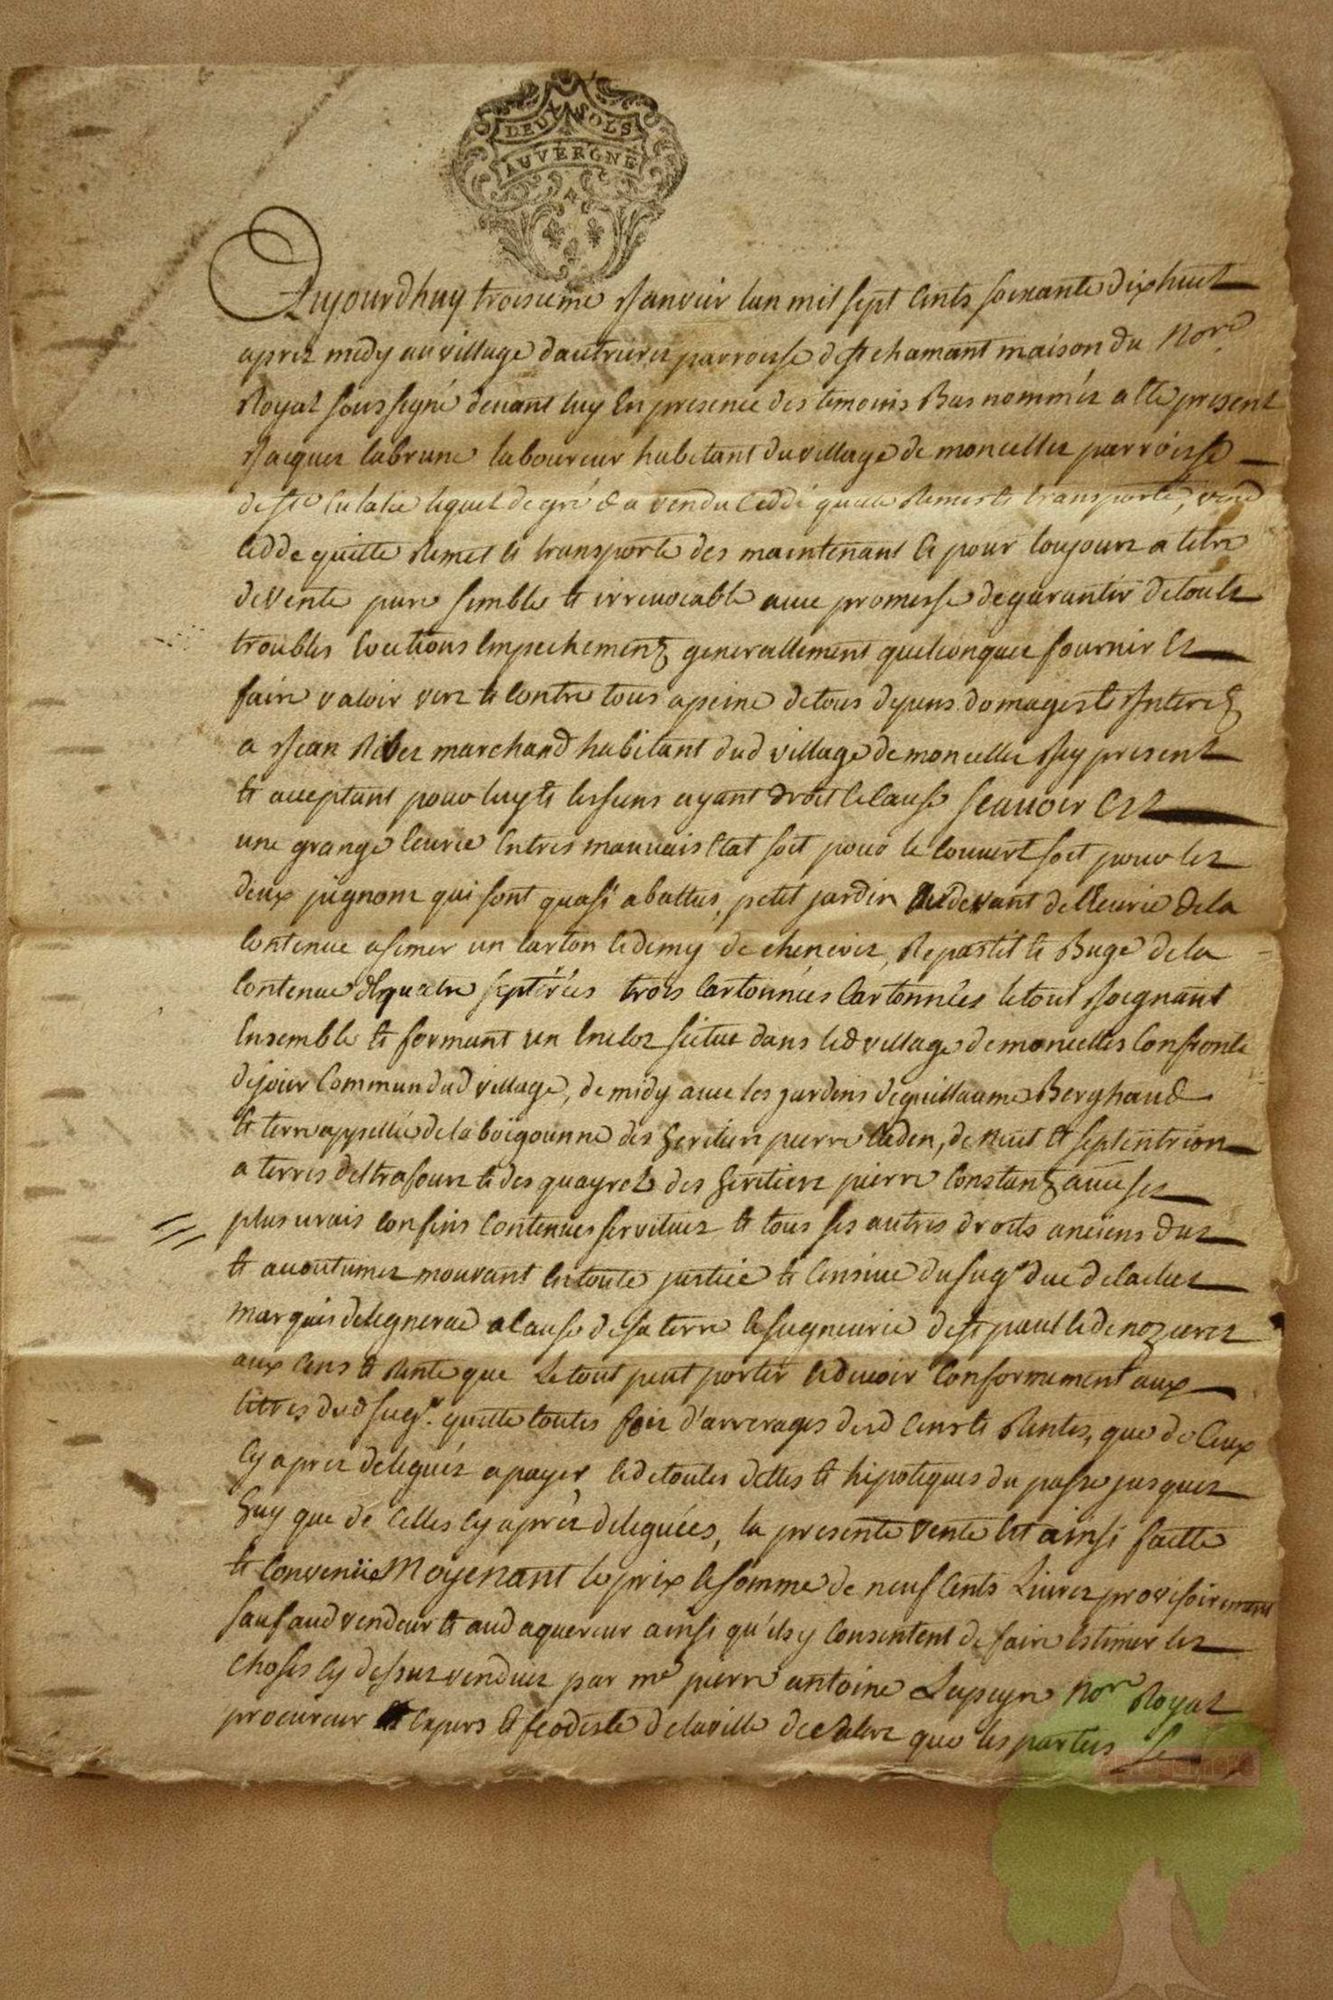 DEUX SOLS
AUVERGNE
Aujourdhuy troisieme Janvier lan mil sept cents soixante dix huit
aprez midy au village dautrierez parroisse de st chamant maison du Nore
Royal soussigné devant luy En presence des temoins Bas nommés a été present
Jacques labrune laboureur habitant du village de moncellez parroisse
de ste Eulalie lequel de gré a vendu Ceddé quitté Remis et transporté, vend
Cedde quitte Remet et transporte des maintenant Et pour toujours a titre
de vente pure simble et irrevocable avec promesse de garantir de touts
troubles Evections Empechements generallement quelconques fournir Et
faire valoir vers et Contre tous a peine de tous depens domages et Interets
a Jean Ribes marchand habitant dud village de moncelles Icy present
et acceptant pour luy et les siens ayant droit Et Cause scauoir Est
une grange Ecurie En tres mauvais Etat soit pour le Couvert soit pour les
deux pignons qui sont quasi abattus, petit jardin audevant de lEcurie de la
Contenue a semer un Carton Et demy de chenevis, Repastil et Buge de la
Contenue de quatre septérées trois Cartonnées le tout Joignant
Ensemble et formant un Enclos scitué dans led village de moncelles Confronte
de jour Commun dud village, de midy avec les jardins de guillaume Berghaud
et terre appellée de la boigounne des heritiers pierre Caden, de Nuit et septentrion
a terres del trasour et des quayrels des heritiers pierre Constant avec ses
plus vrais Confins Contenues servitues et tous ses autres droits anciens dus
et acoutumes mouvant En toute justice et Censive du seigr duc de
marquis de lignerac a Cause de sa terre Et seigneurie de st paul Et de nozieres
aux Cens et Rente que le tout peut porter Et devoir Conformement aux
titres dud seigr. quitte toutes fois d'arrerages desd Cens et Rentes, que de Ceux
Cy aprez delegués a payer, Et de toutes dettes et hipoteques du passé jusques
huy que de Celles Cy aprés deleguées, la presente vente Est ainsi faitte
et Convenüe Moyenant le prix Et somme de neuf Cents Livres provisoirement
sauf aud vendeur et aud aquereur ainsi qu'ils y Consentent de faire Estimer les
choses Cy dessus vendues par me pierre antoine Lapeyre Nore Royal
procureur Et Expers et feodiste de la ville de Salers que les parties se